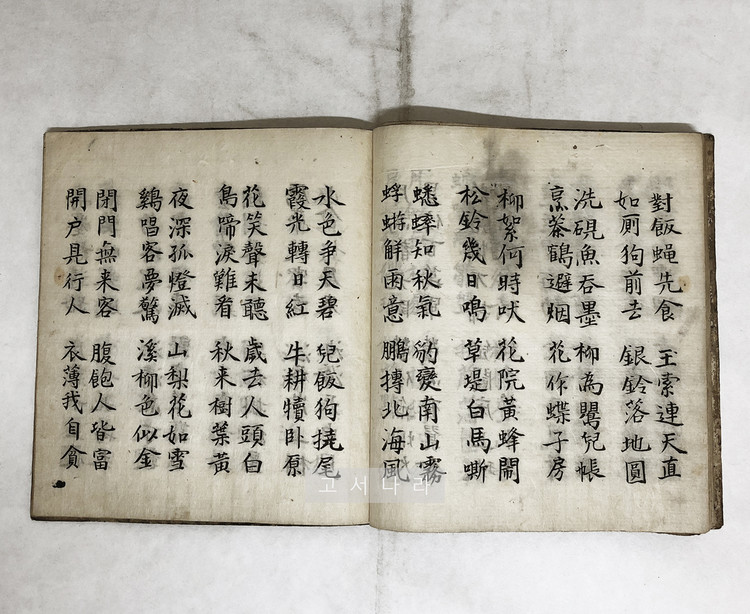 對飯蠅先食 王索連天直
如厠狗前去 銀鈴落地圓
洗硯魚吞墨 柳為鸎兒帳
烹茶鶴避烟 花作蝶子房
柳絮何時吠 花院黃蜂鬧
松鈴幾日鳴 草堤白馬嘶
蟋蟀知秋氣 豹變南山霧
蜉蝣解雨意 鵬摶北海風
水色爭天碧 兒飯狗撓尾
霞光轉日紅 牛耕犢臥原
花笑聲未聽 歲去人頭白
鳥啼淚難看 秋来樹葉黃
夜深孤燈滅 山梨花如雪
鷄唱客夢驚 溪柳色似金
閉門無来客 腹飽人皆富
開户見行人 衣薄我自貧
고서나라